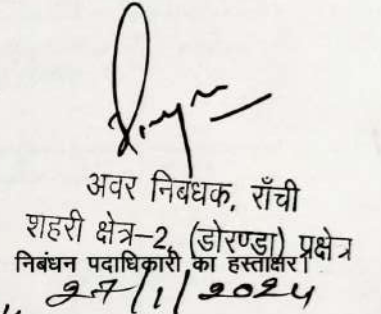 अवर निबंधक, राँची
शहरी क्षेत्र-2, (डोरण्डा) प्रक्षेत्र
निबंधन पदाधिकारी का हस्ताक्षर।
27/1/2024